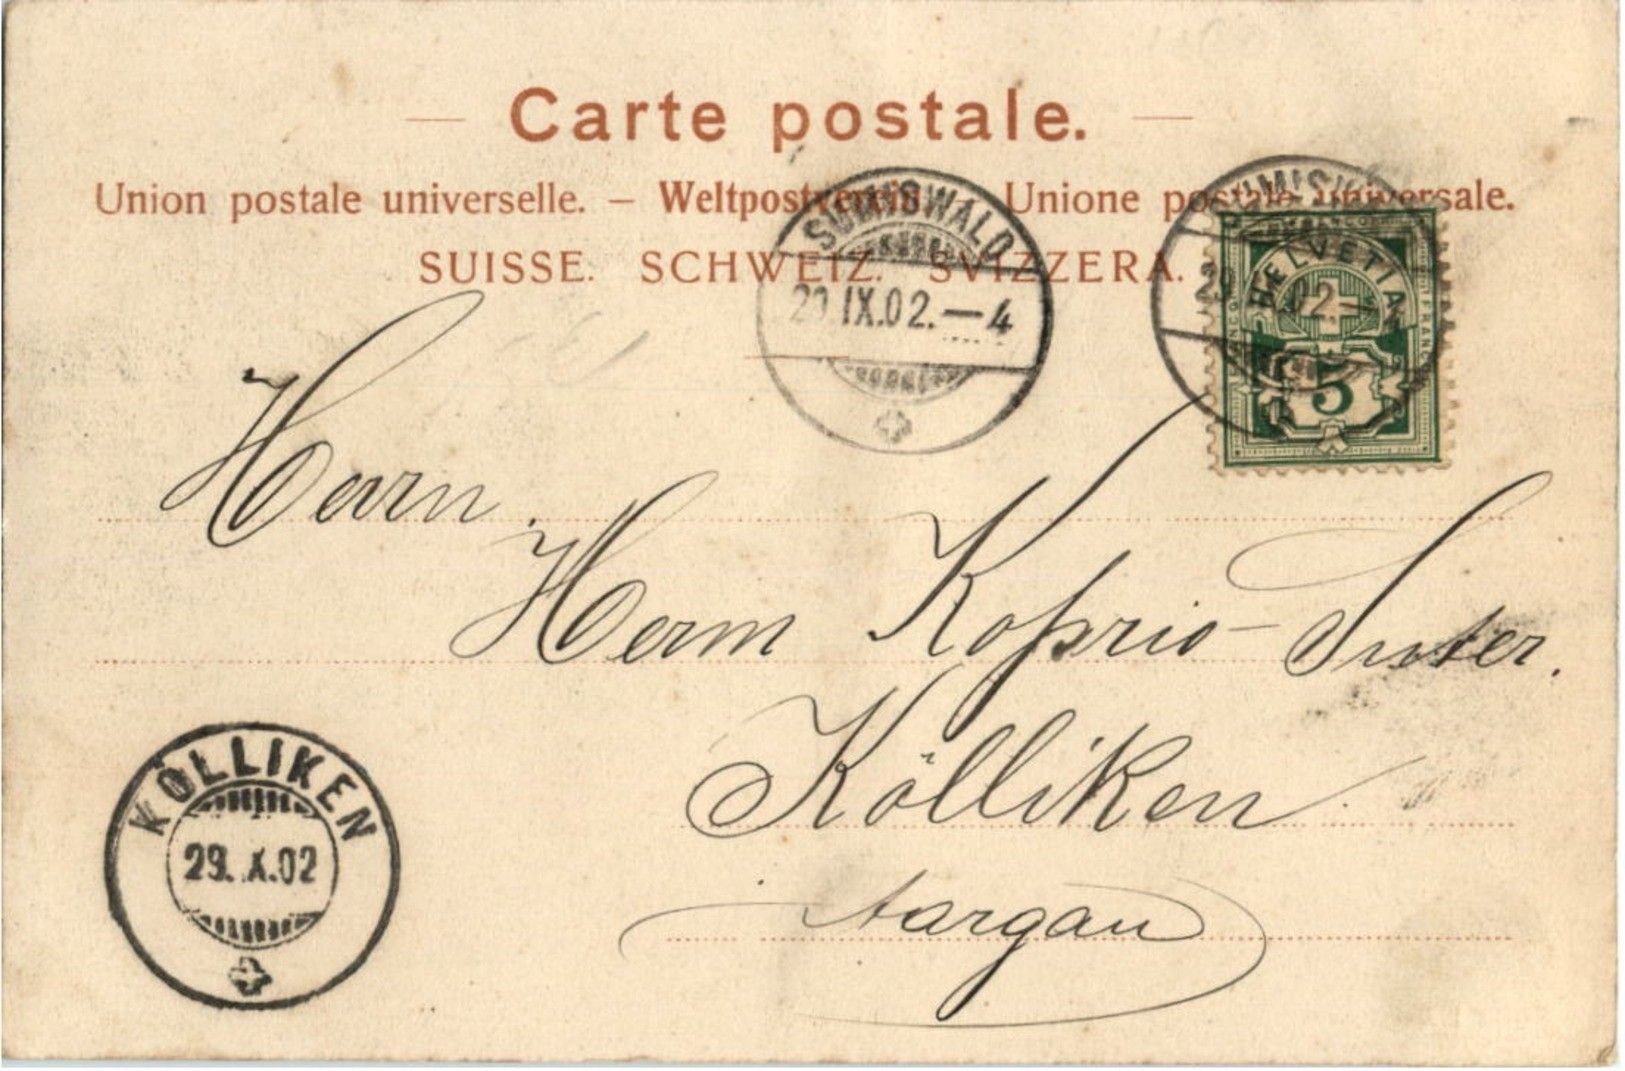 Carte postale.
Union postale universelle. – Weltpostverein – Unione postale universale.
SUISSE. SCHWEIZ. SVIZZERA.
SUMISWALD
29.IX.02.–4
SUMISWALD
29. 02.–4
HELVETIA
FRANCO
5
Herrn
Herm Koprio-Suter.
Kölliken
Aargau
KÖLLIKEN
29. X.02